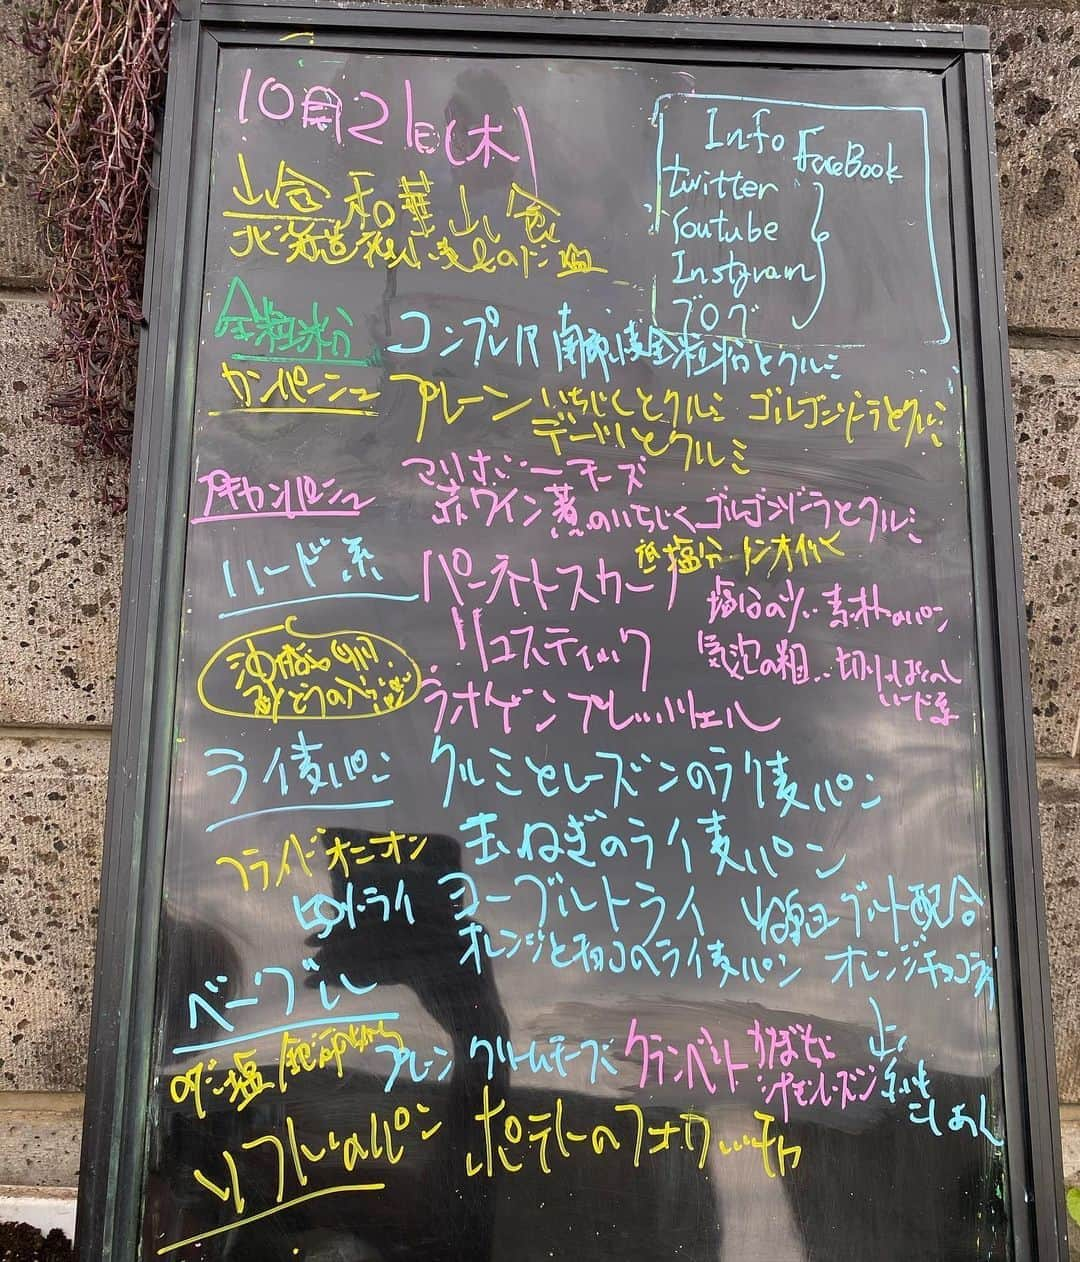 10月21日(木)
Info FaceBook
twitter
Youtube
Instgram
ブログ
山食 和華山食
北海道
全粒粉 コンプレ 南部小麦全粒粉とクルミ
カンパーニュ プレーン いちじくとクルミ ゴルゴンゾーラとクルミ
デーツとクルミ
プチカンパーニュ チーズ
赤ワイン煮のいちじく ゴルゴンゾーラとクルミ
低塩分
ハード系 パーネトスカーナ 素朴なパン
リュスティック 気泡の粗い 切りっぱなし
ハード系
油脂
ラオゲンプレッツェル
ライ麦パン クルミとレーズンのライ麦パン
フライドオニオン 玉ねぎのライ麦パン
ヨーグルトライ 配合
オレンジとチョコのライ麦パン オレンジチョコライ
ベーグル
プレーン クリームチーズ クランベリー かぼちゃ
シナモンレーズン
こしあん
ソフトなパン ポテトのフォカッチャ